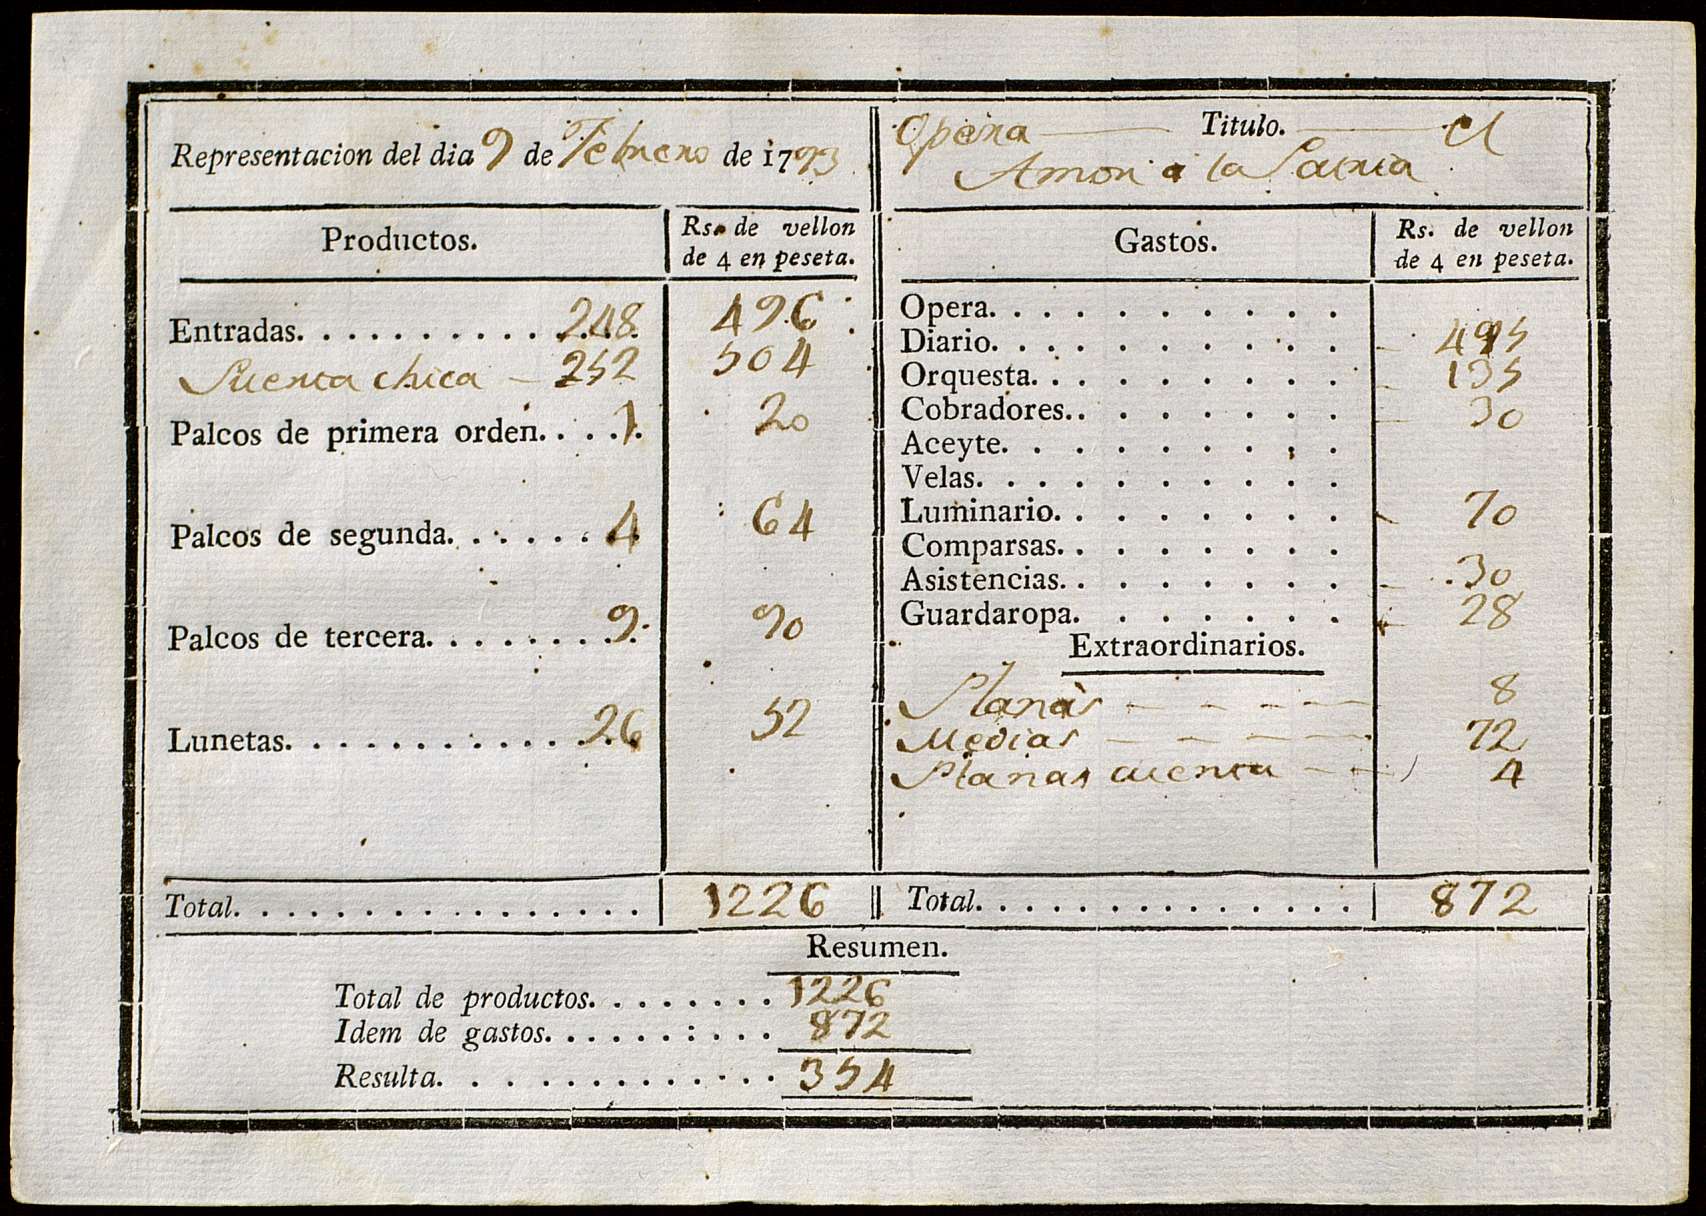 Representacion del dia 9 de Febrero de 1793
Productos.
Rs. de vellon
de 4 en peseta.
Entradas. 248 496
Puerta chica — 252 504
Palcos de primera orden. 1 20
Palcos de segunda. 4 64
Palcos de tercera. 9 90
Lunetas. 26 52
Total. 1226
Opera — Titulo. — el
Amor a la Patria
Gastos.
Rs. de vellon
de 4 en peseta.
Opera.
Diario. 495
Orquesta. 135
Cobradores. 30
Aceyte.
Velas.
Luminario. 70
Comparsas.
Asistencias. 30
Guardaropa. 28
Extraordinarios.
Planas 8
Medias 72
Planas cuenta 4
Total. 872
Resumen.
Total de productos. 1226
Idem de gastos. 872
Resulta. 354